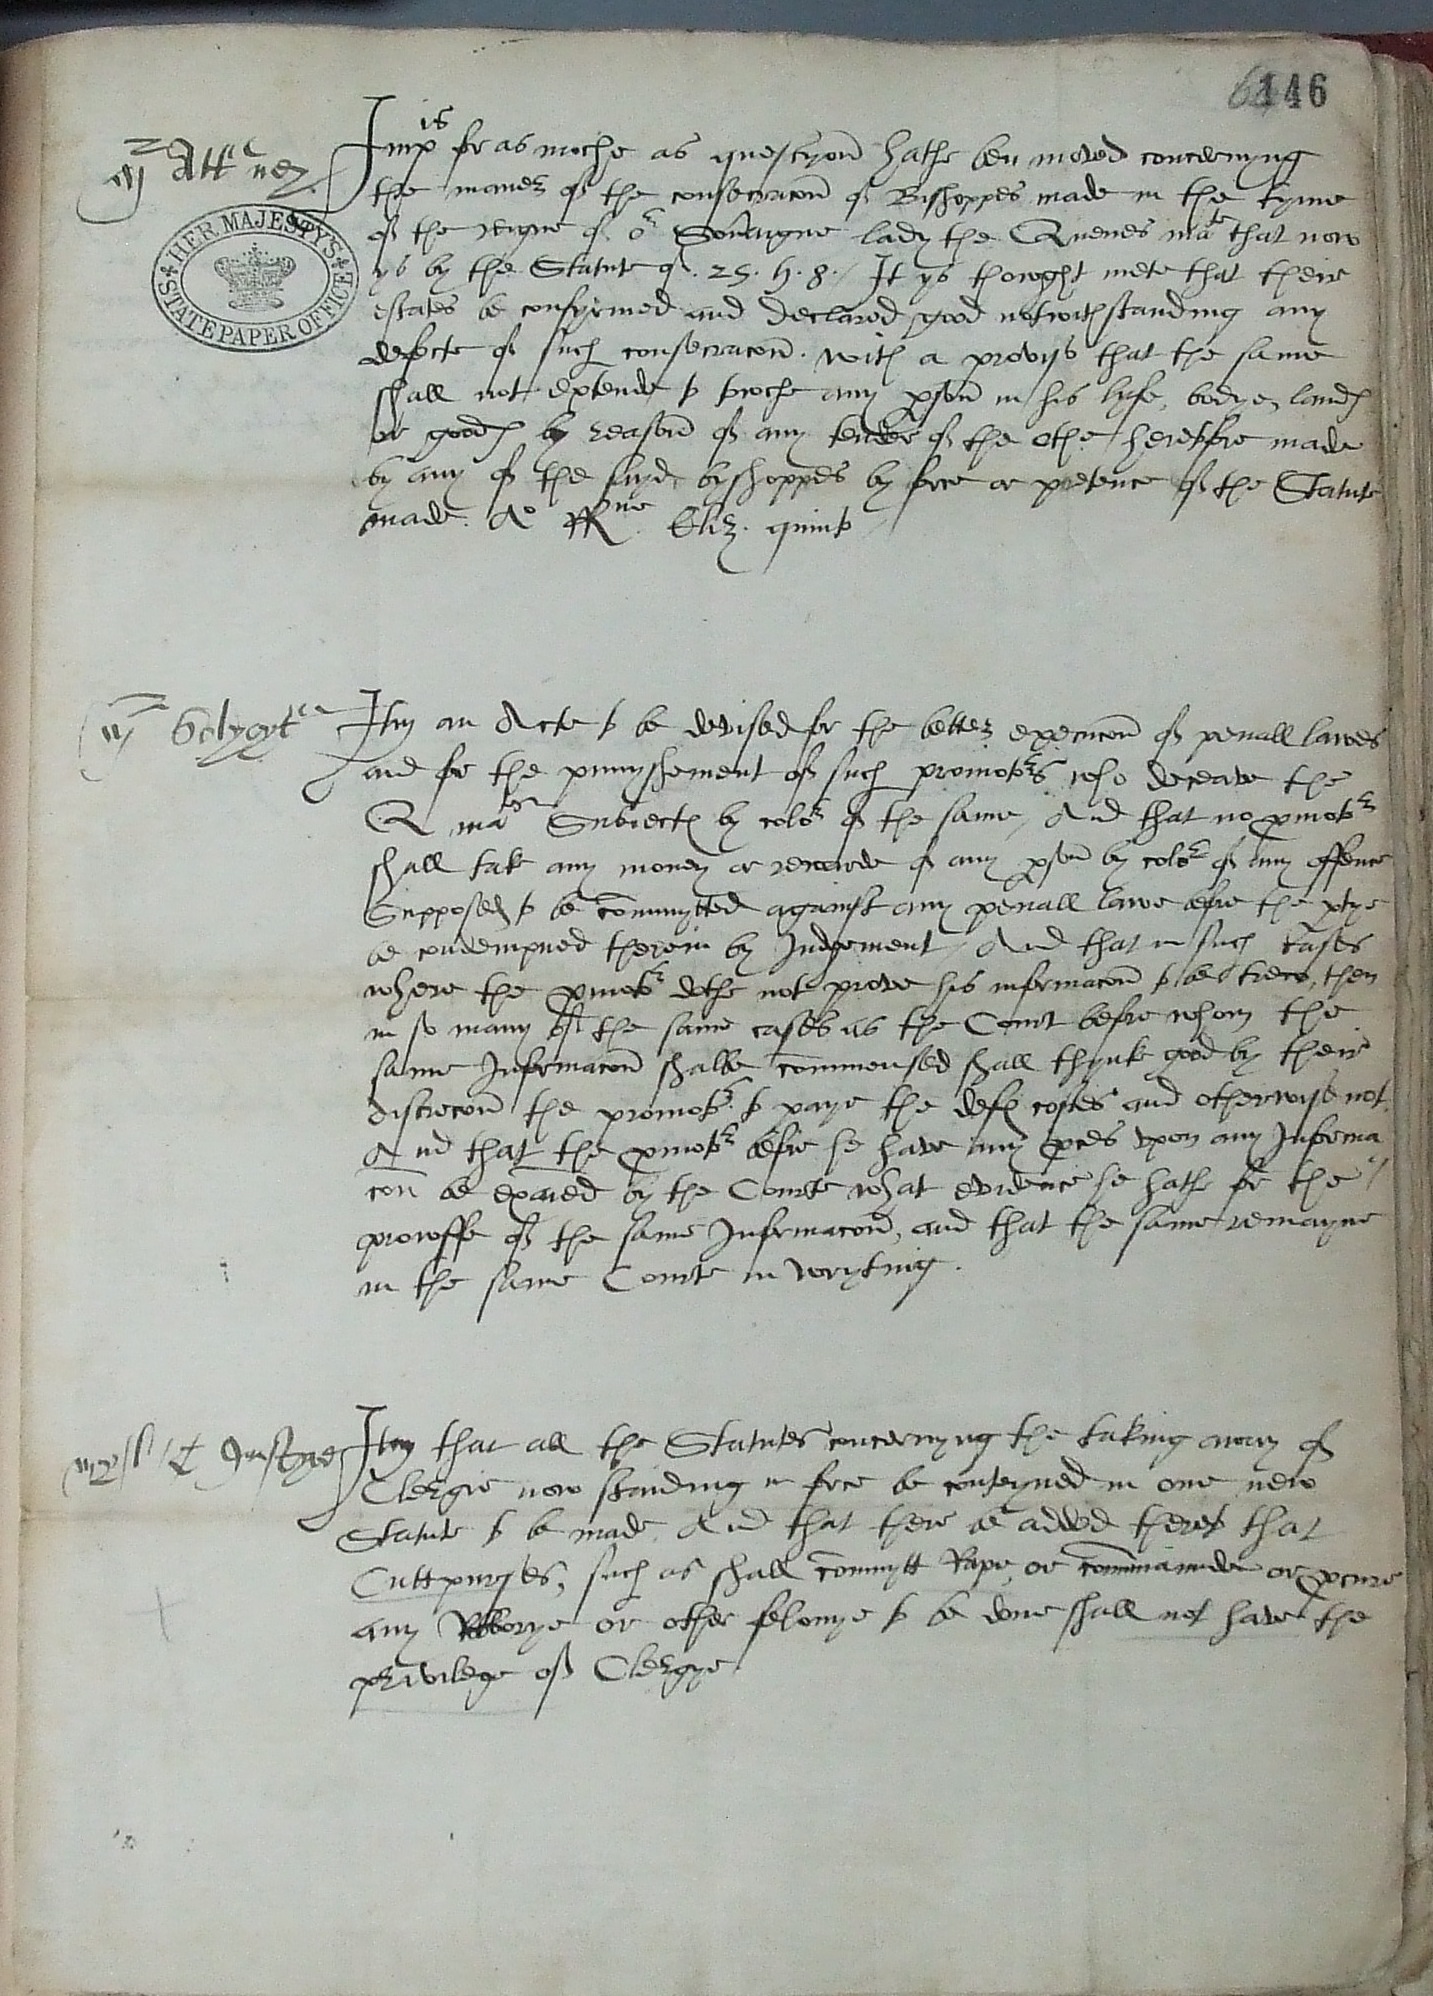 146
Imp is for as moche as questyon hathe ben moved concernyng
the maner of the consecracon of Bishoppes made in the tyme
of the reigne of or Soveraigne lady the Quenes mate that now
ys by the Statute of . 25 . h . 8 . / It ys thowght mete that their
estates be confyrmed and declared good notwithstanding any
defecte of such consecracon . with a provyso that the same
shall not extende to towche any pson in his lyfe, bodye, landes
or goodes by reason of any tender of the othe heretofore made
by any of the sayd byshoppes by force or pretence of the Statute
made . Ao RRne Eliz . quinto
mr Attorney
HER MAJESTY'S
STATE PAPER OFFICE
Itm an Acte to be devised for the better execucon of penall lawes
and for the punnyshement of such promotors who deceave the
Q mates Subiectes by color of the same, And that no pmotor
shall tak any money or rewarde of any pson by color of any offence
Supposed to be commytted against any penall lawe before the ptye
be condempned therein by Judgement / And that in such cases
where the pmotor dothe not prove his informacon to be trewe, then
in so many of the same cases as the Court before whom the
same Informacon shalbe commensed shall thynke good by their
discrecon the promotor to paye the deft costes and otherwise not.
And that the pmotor before he have any pces vpon any Informa
con be examed by the Courte what evidence he hath for the
prowffe of the same Informacon, and that the same remayne
in the same Courte in wryting .
Itm that all the Statutes concernyng the taking away of
Clergie now standing in force be conteyned in one new
Statute to be made And that there be added therto that
Cuttpurses, such as shall commytt Rape, or commaunde or pcure
any Robborye or other felonye to be done shall not have the
privilege of Clergye